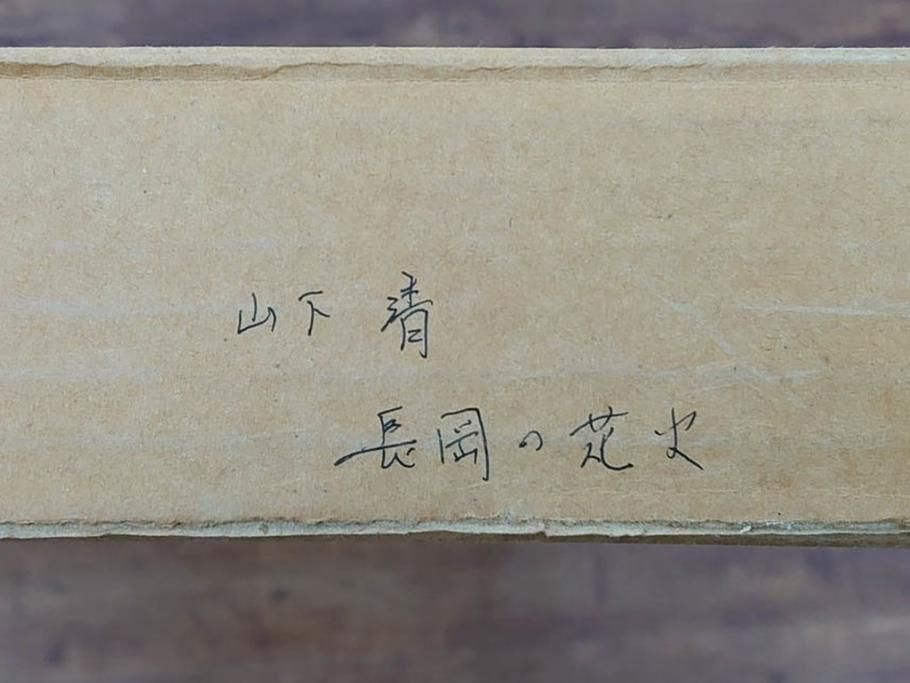 山下 清
長岡の花火